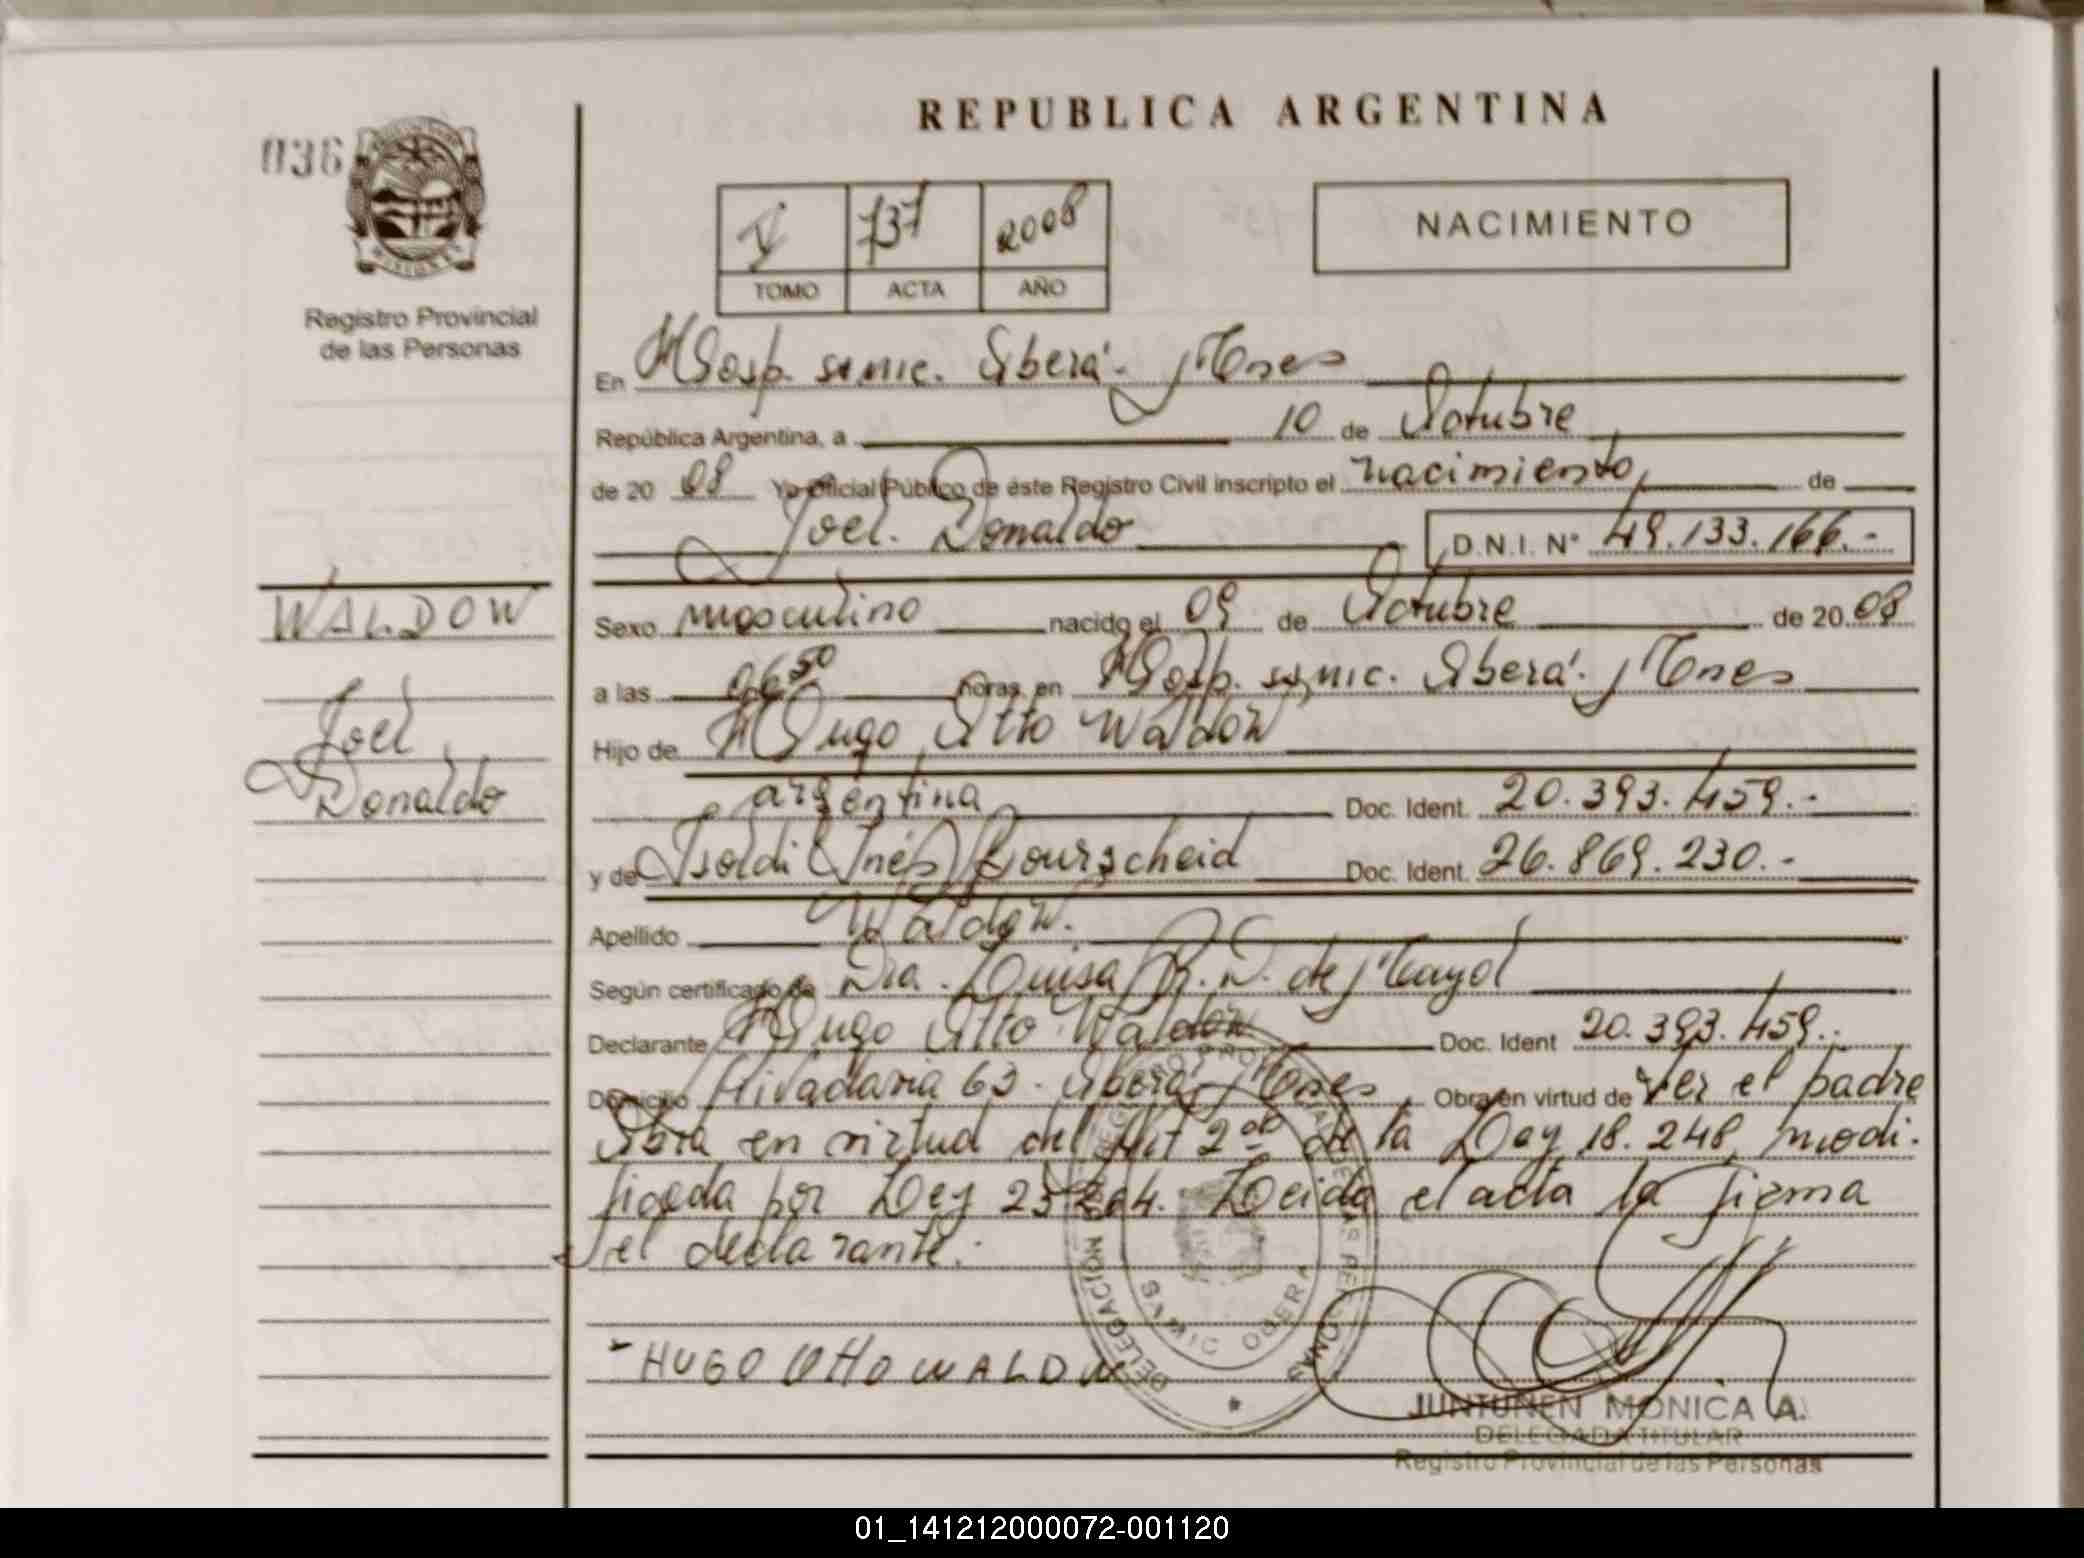 036
REPUBLICA ARGENTINA
V 737 2008
TOMO ACTA AÑO
NACIMIENTO
Registro Provincial
de las Personas
En Hosp. samic. Oberá. Mnes
República Argentina, a 10 de Octubre
de 20 08 Yo Oficial Público de éste Registro Civil inscripto el nacimiento de
Joel. Donaldo D.N.I. N° 49.133.166.-
WALDOW
Joel
Donaldo
Sexo masculino nacido el 09 de Octubre de 20 08
a las 06 50 horas, en Hosp. samic. Oberá. Mnes
Hijo de Hugo Otto Waldow
argentina Doc. Ident. 20.393.459.-
y de Isoldi Inés Bourscheid Doc. Ident. 26.869.230.-
Apellido Waldow.
Según certificado de Dra. Luisa R. D. de Mayol
Declarante Hugo Otto Waldow Doc. Ident 20.393.459.-
Domicilio Rivadavia 63. Oberá, Mnes Obra en virtud de Ser el padre
Obra en virtud del Art 2do de la Ley 18.248, modi.
ficada por Ley 23264. Leida el acta la firma
el declarante.
HUGO OTTO WALDOW
DELEGACION REGISTRO PROVINCIAL DE LAS PERSONAS
SAMIC OBERA
JUNTUNEN MONICA A.
DELEGADA TITULAR
Registro Provincial de las Personas
01_141212000072-001120